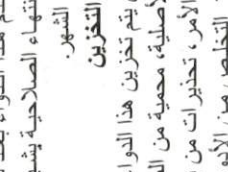 هذا الدواء بعد
انتهاء الصلاحية يشير
الشهر.
التخزين
يتم تخزين هذا الدوا
الأصلية، محمية من ال
الأمر، تحذيرات من
التخلص من الأدو